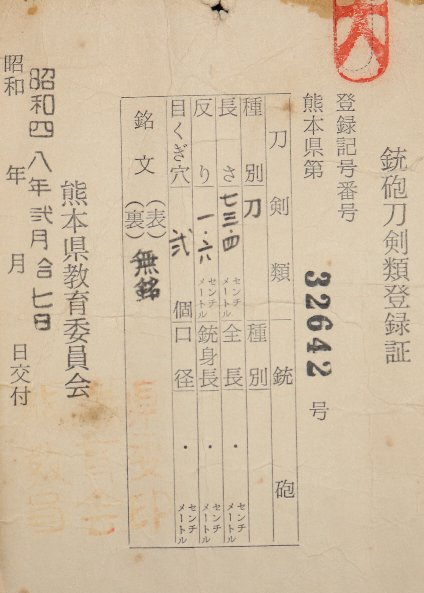 銃砲刀剣類登録証
登録記号番号
熊本県第 32642 号
刀剣類 銃砲
種別 刀 種別
長さ 七三・四 センチメートル 全長 ・ センチメートル
反り 一・六 センチメートル 銃身長 ・ センチメートル
目くぎ穴 弐 個 口径 ・ センチメートル
銘文 (表) 無銘
(裏)
熊本県教育委員会
昭和四八年弐月合七日
昭和 年 月 日交付